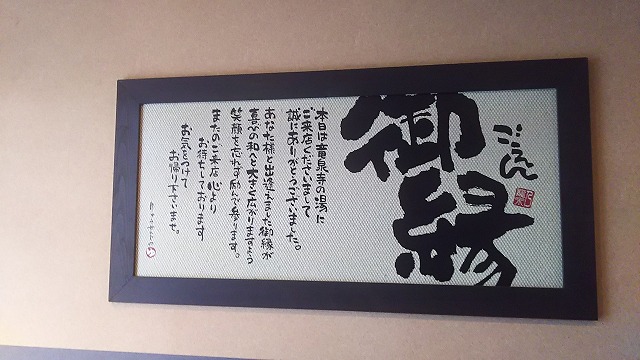 御縁
ごえん
本日は竜泉寺の湯に
ご来店くださいまして
誠にありがとうございました。
あなた様と出逢えました御縁が
喜びの和へと大きく広がりますよう
笑顔を忘れず励んで参ります。
またのご来店心より
お待ちしております
お気をつけて
お帰り下さいませ。